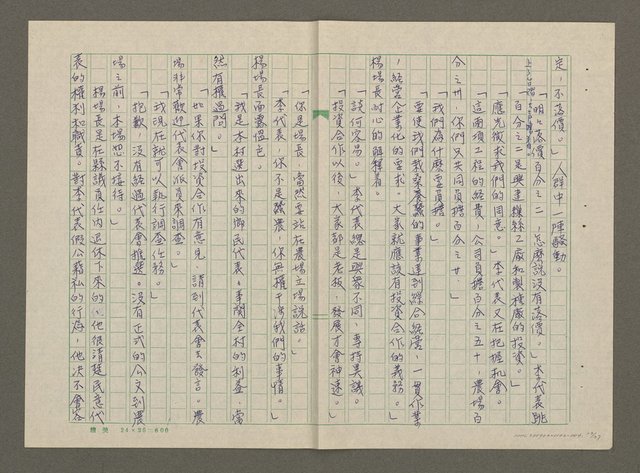 定，不落價。」人群中一陣騷動。
「明明落價百分之二，怎麼說沒有落價。」李代表跳
「百分之二是興建繰絲工廠和製種廠的投資。」
「應先徵求我們的同意。」李代表又在把握機會。
「這兩項工程的經費，公司負擔百分之五十，農場百
分之卅，你們只共同負擔百分之廿。」
「我們為什麼要負擔。」
「要使我們栽桑養蠶的事業達到綜合經營，一貫作業
，經營企業化的要求。大家就應該有投資合作的義務。」
楊場長耐心的解釋着。
「談何容易。」李代表總是與眾不同，專持異議。
「投資合作以後，大家都是老板，發展才會神速。」
「你是場長，當然要站在農場立場說話。」
「李代表，你不是蠶農，你無權干涉我們的事情。」
楊場長面露慍色。
「我是本村選出來的鄉民代表，事關全村的利益，當
然有權過問。」
「如果你對投資合作有意見，請到代表會去發言。農
場非常歡迎代表會派員來調查。」
「我現在就可以執行調查任務。」
「抱歉，沒有經過代表會推選。沒有正式的公文到農
場之前，本場恕不接待。」
楊場長是在縣議員任內退休下來的，他很清楚民意代
表的權利和職責。對李代表假公藉私的行為，他決不會容
24×25=600